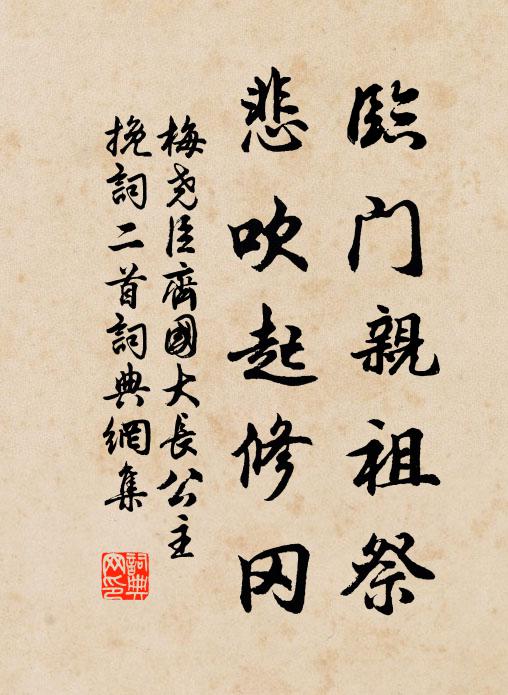 臨门親祖祭
悲吹起修冈
梅尭臣齊國大長公主
挽詞二首詞典網集
詞典网印